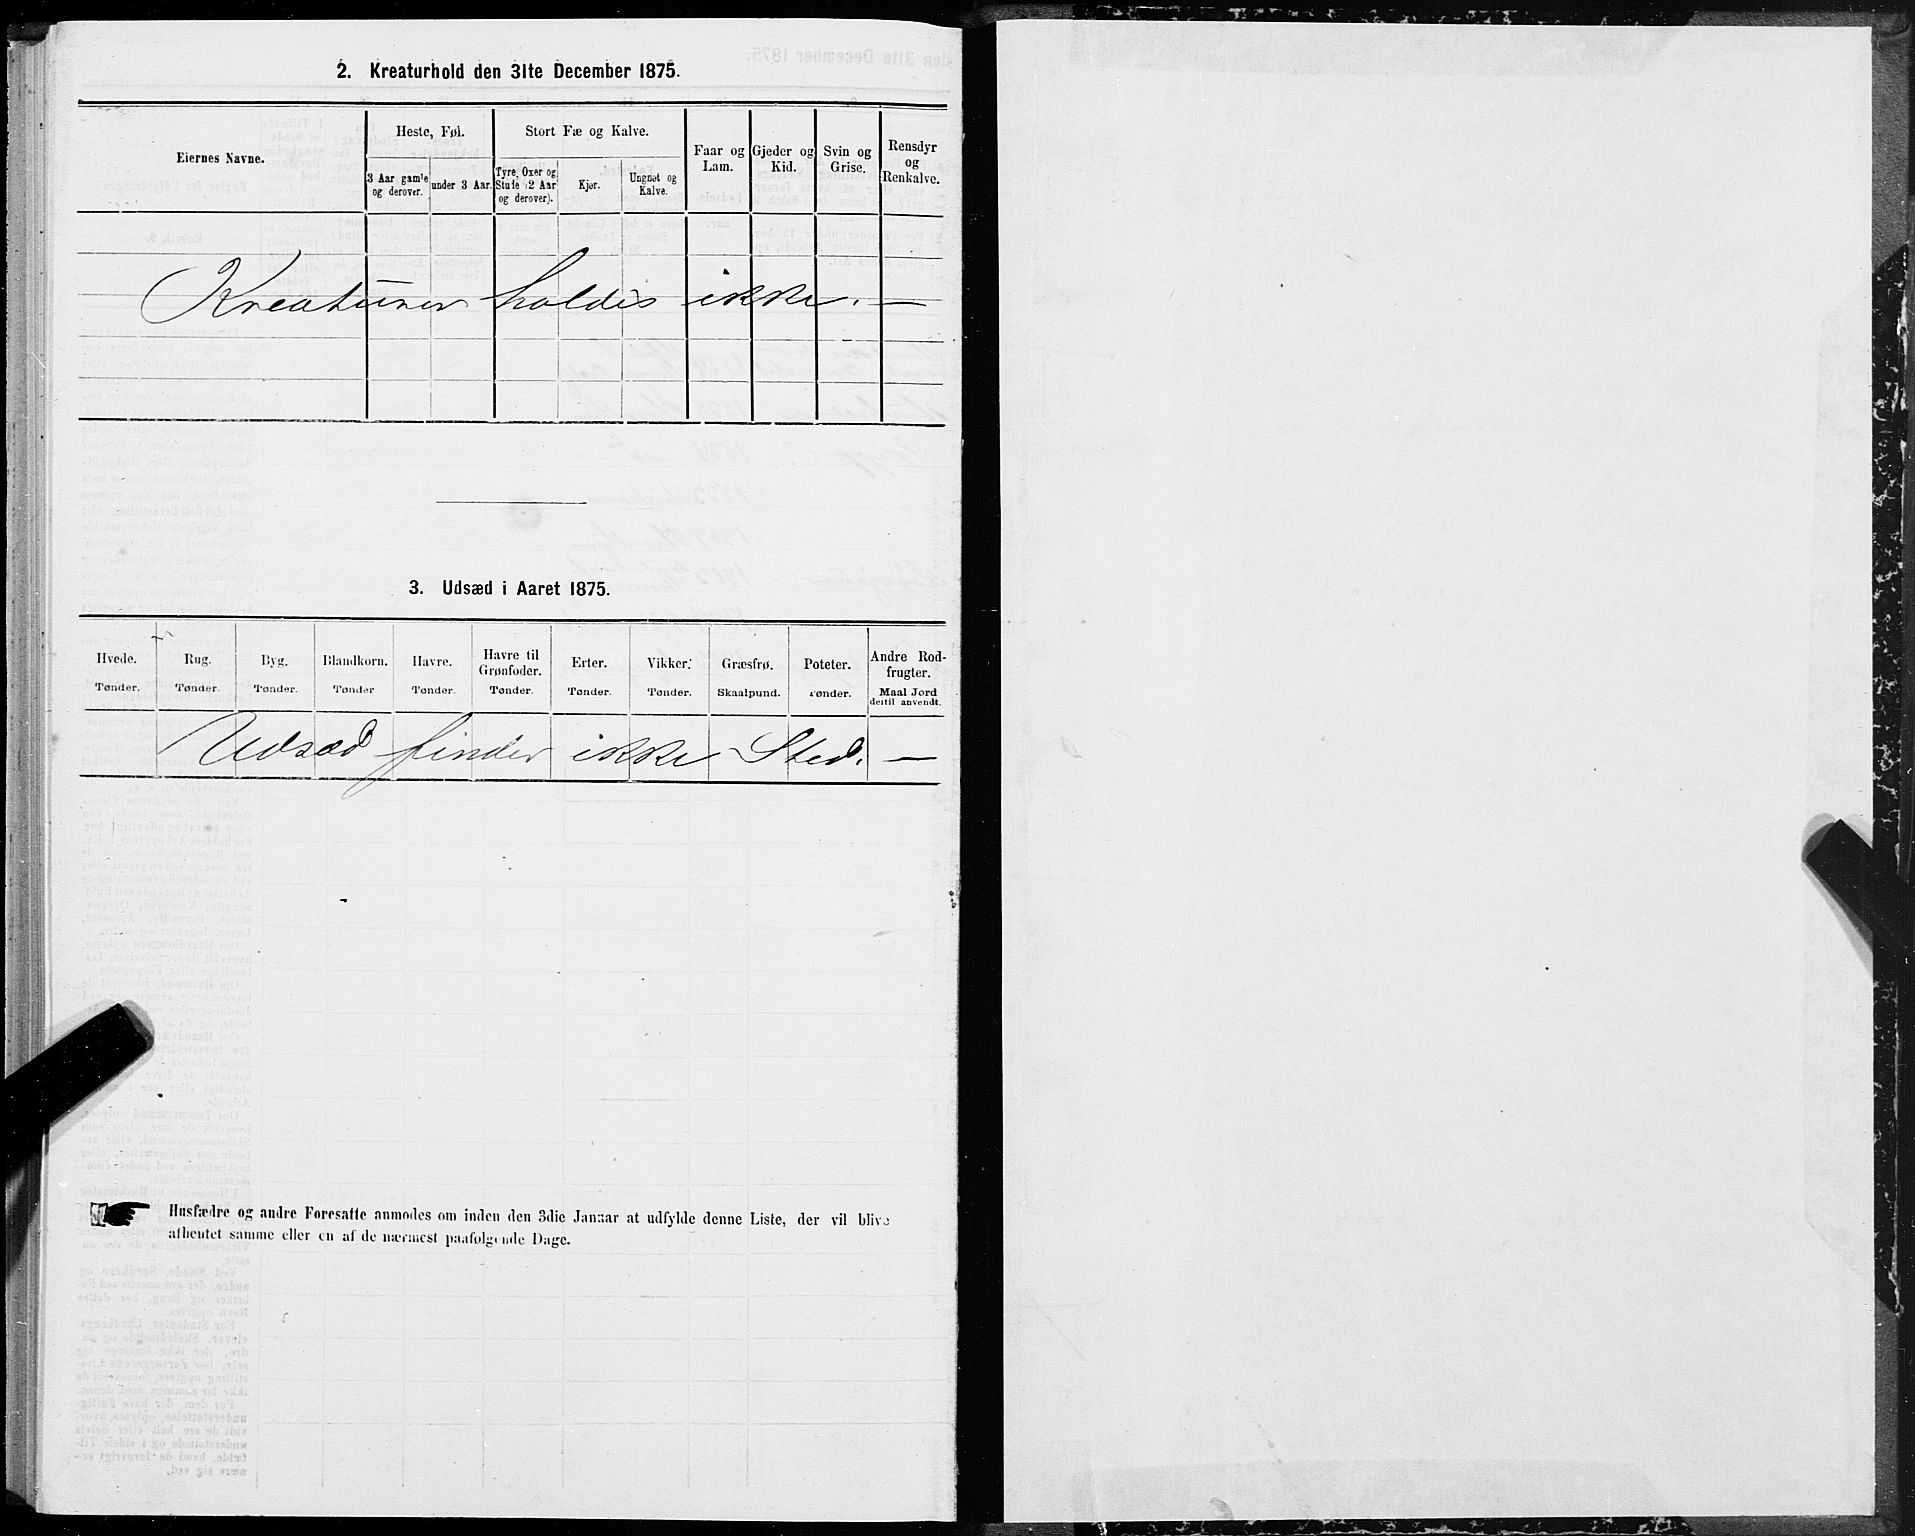 2. Kreaturhold den 31te December 1875.
Eiernes Navne.
Heste, Føl.
3 Aar gamle og derover.
under 3 Aar.
Stort Fæ og Kalve.
Tyre, Oxer og Stute (2 Aar og derover).
Kjør.
Ungnøt og Kalve.
Faar og Lam.
Gjeder og Kid.
Svin og Grise.
Rensdyr og Renkalve.
Kreaturer holdes ikke. —
3. Udsæd i Aaret 1875.
Hvede. Tønder.
Rug. Tønder.
Byg. Tønder.
Blandkorn. Tønder
Havre. Tønder.
Havre til Grønfoder. Tønder.
Erter. Tønder.
Vikker. Tønder.
Græsfrø. Skaalpund.
Poteter. Tønder.
Andre Rodfrugter. Maal Jord dertil anvendt.
Udsæd finder ikke Sted. —
Husfædre og andre Foresatte anmodes om inden den 3die Januar at udfylde denne Liste, der vil blive
afhentet samme eller en af de nærmest paafølgende Dage.